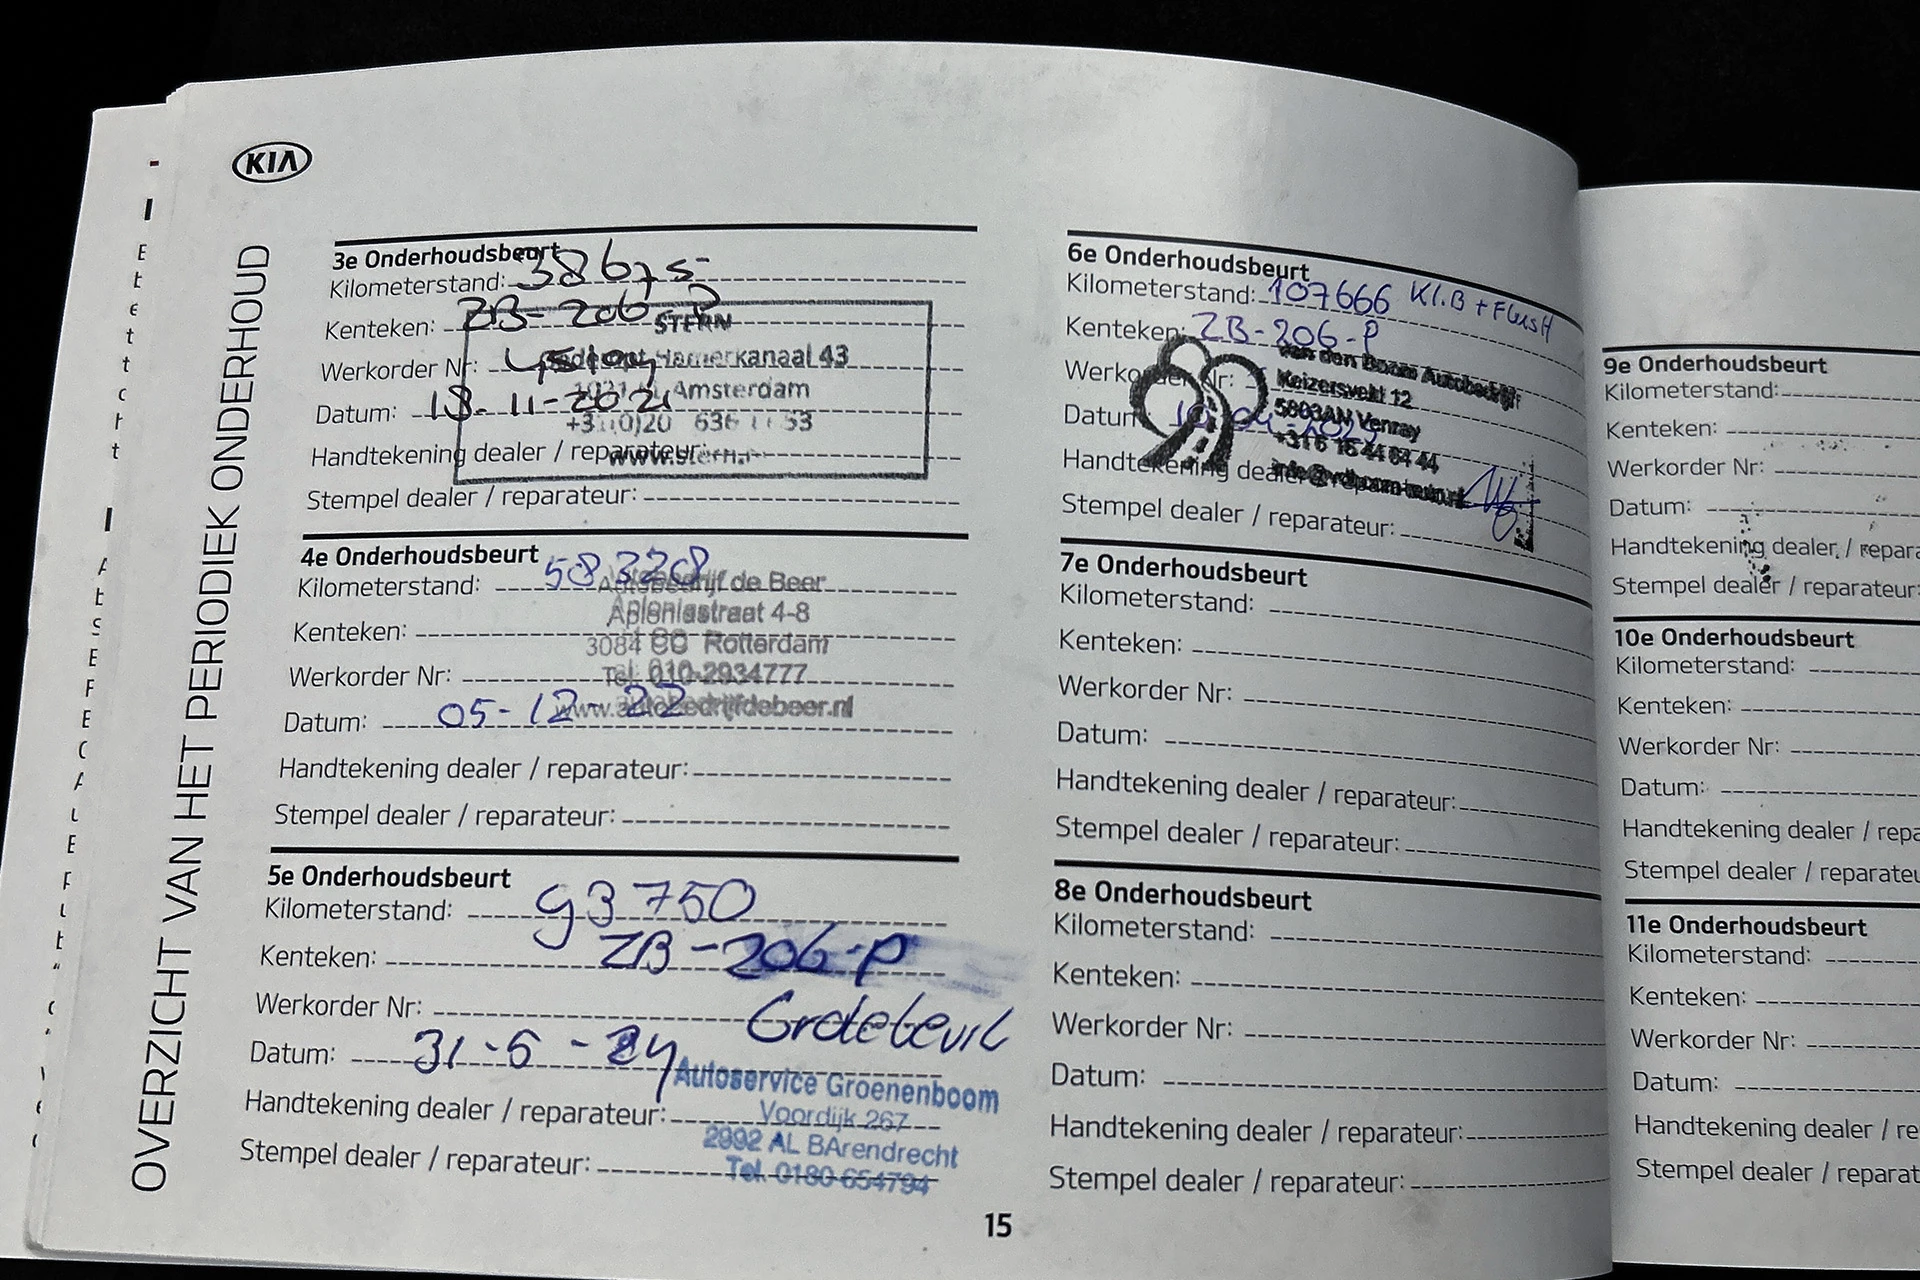 KIA
OVERZICHT VAN HET PERIODIEK ONDERHOUD
3e Onderhoudsbeurt
Kilometerstand: 38675
Kenteken: ZB-206-P
STERN
Werkorder Nr:
Hamerkanaal 43
Amsterdam
Datum: 18-11-2021
+31(0)20 636
Handtekening dealer / reparateur:
Stempel dealer / reparateur:
4e Onderhoudsbeurt
Kilometerstand: 58328
Autobedrijf de Beer
Apleniastraat 4-8
Kenteken:
3084 Rotterdam
Werkorder Nr:
Tel. 010-2934777
www.autobedrijfdebeer.nl
Datum: 05-12-22
Handtekening dealer / reparateur:
Stempel dealer / reparateur:
5e Onderhoudsbeurt
Kilometerstand: 93750
Kenteken: ZB-206-P
Werkorder Nr: Grotebeurt
Datum: 31-5-24
Autoservice Groenenboom
Handtekening dealer / reparateur:
Voordijk 267
2992 AL BArendrecht
Stempel dealer / reparateur:
Tel. 0180-654794
6e Onderhoudsbeurt
Kilometerstand: 107666 Kl.B + Flush
Kenteken: ZB-206-P
van den Boom Autobedrijf
Werkorder Nr:
Keizersveld 12
5803AN Venray
Datum:
+31 6 16 44 64 44
Handtekening dealer / reparateur:
Stempel dealer / reparateur:
7e Onderhoudsbeurt
Kilometerstand:
Kenteken:
Werkorder Nr:
Datum:
Handtekening dealer / reparateur:
Stempel dealer / reparateur:
8e Onderhoudsbeurt
Kilometerstand:
Kenteken:
Werkorder Nr:
Datum:
Handtekening dealer / reparateur:
Stempel dealer / reparateur:
15
9e Onderhoudsbeurt
Kilometerstand:
Kenteken:
Werkorder Nr:
Datum:
Handtekening dealer / repara
Stempel dealer / reparateur:
10e Onderhoudsbeurt
Kilometerstand:
Kenteken:
Werkorder Nr:
Datum:
Handtekening dealer / repa
Stempel dealer / reparateu
11e Onderhoudsbeurt
Kilometerstand:
Kenteken:
Werkorder Nr:
Datum:
Handtekening dealer / re
Stempel dealer / reparat